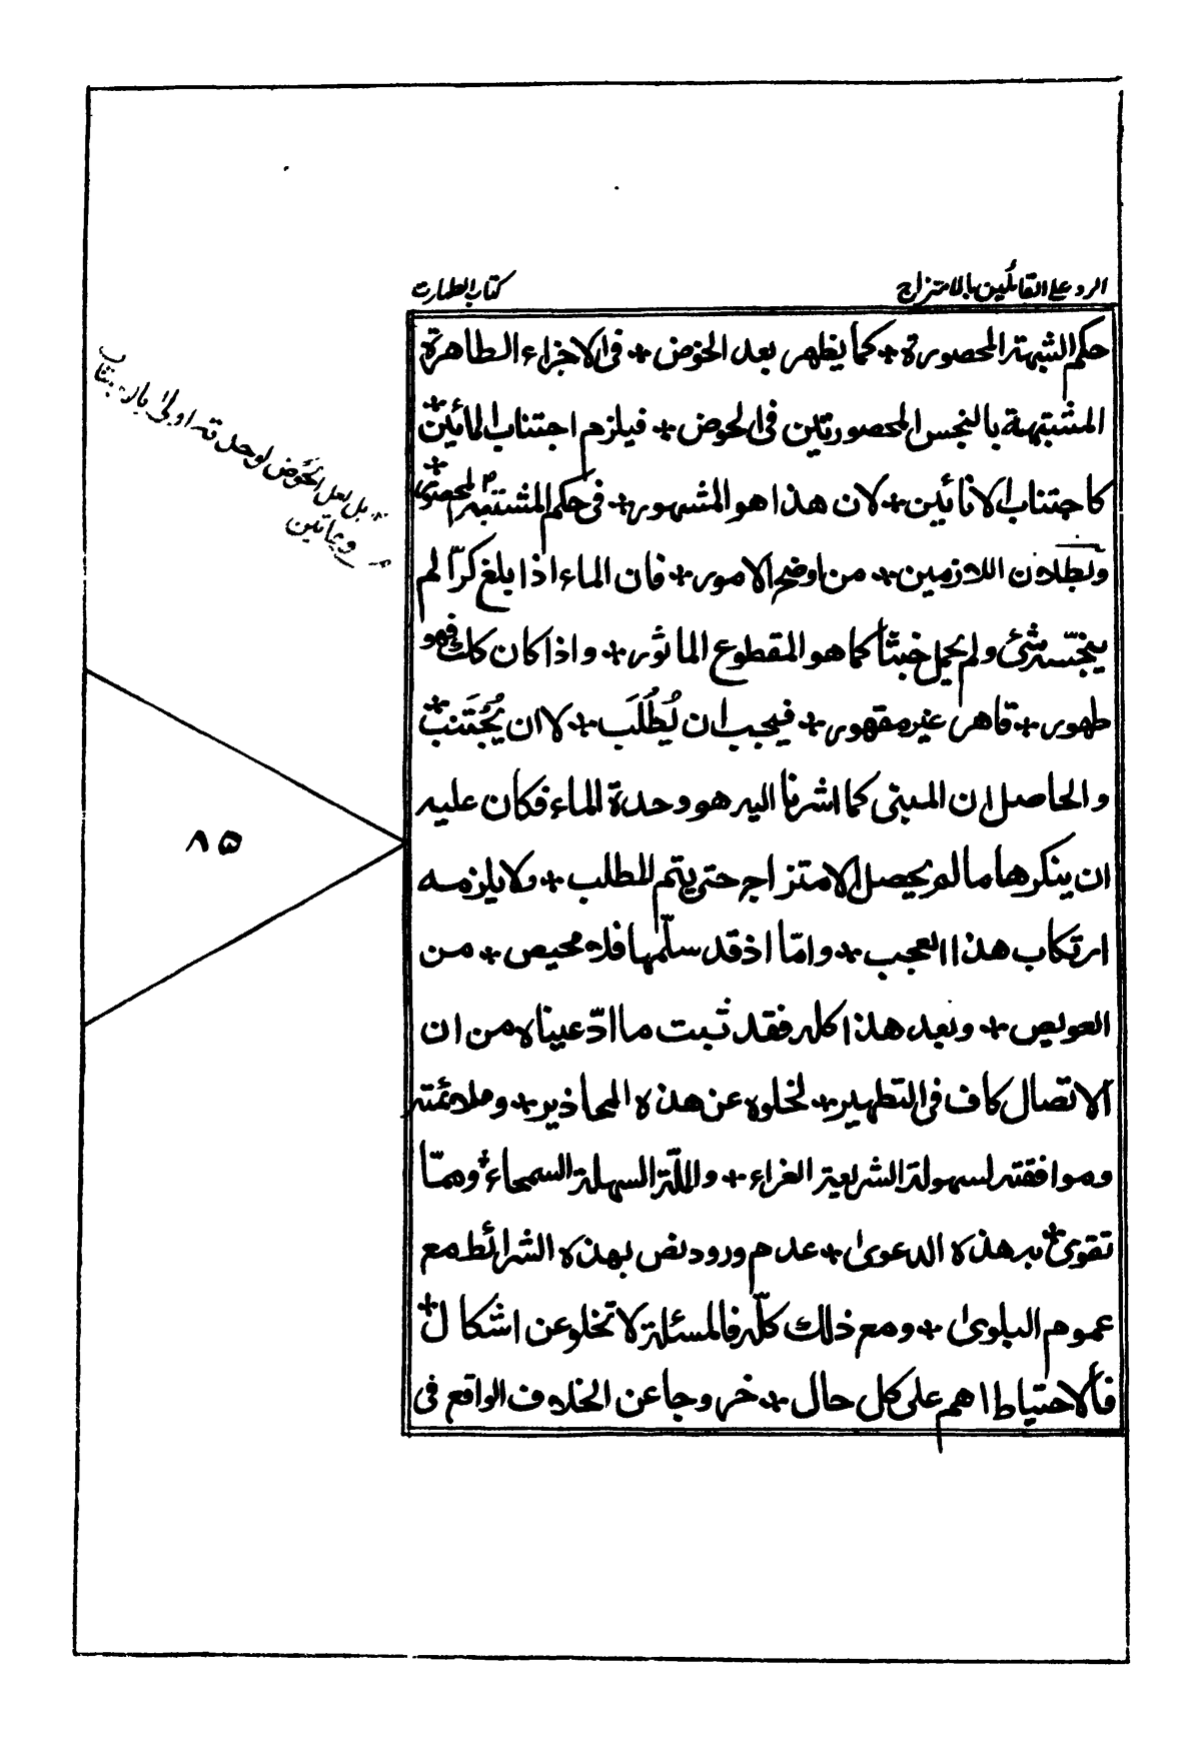 الرد على القائلين بالامتزاج
كتاب الطهارت
حكم الشبهة المحصورة + كما يظهر بعد الخوض + فى الاجزاء الطاهرة
المشتبهة بالنجس المحصورتين فى الحوض + فيلزم اجتناب المائين +
كاجتناب الانائين + لان هذا هو المشهور + فى حكم المشتبه المحصور +
وبطلان اللازمين + من اوضح الامور + فان الماء اذا بلغ كرّا لم
ينجّسه شئ ولم يحمل خبثًا كما هو المقطوع الماثور + واذا كان كك فهو
طهور + قاهر غير مقهور + فيجب ان يُطْلَبَ + لا ان يُجْتَنب +
والحاصل ان المبنى كما اشرنا اليه هو وحدة الماء فكان عليه
ان ينكرها ما لم يحصل الامتزاج حتى يتم المطلب + ولا يلزمه
ارتكاب هذا العجب + وامّا اذ قد سلّمها فلا محيص + من
العويص + وبعد هذا كله فقد ثبت ما ادّعيناه من ان
الاتصال كاف فى التطهير + لخلوه عن هذه المحاذير + وملائمته
وموافقته لسهولة الشريعة الغراء + والملّة السهلة السمحاء + وممّا
تقوى + به هذه الدعوىٰ + عدم ورود نص بهذه الشرائط مع
عموم البلوىٰ + ومع ذلك كلّه فالمسئلة لا تخلو عن اشكال +
فالاحتياط اهم على كل حال + خروجا عن الخلاف الواقع فى
بل لعل الحَوْض لوحدته اولىٰ بالاجتناب
٨٥